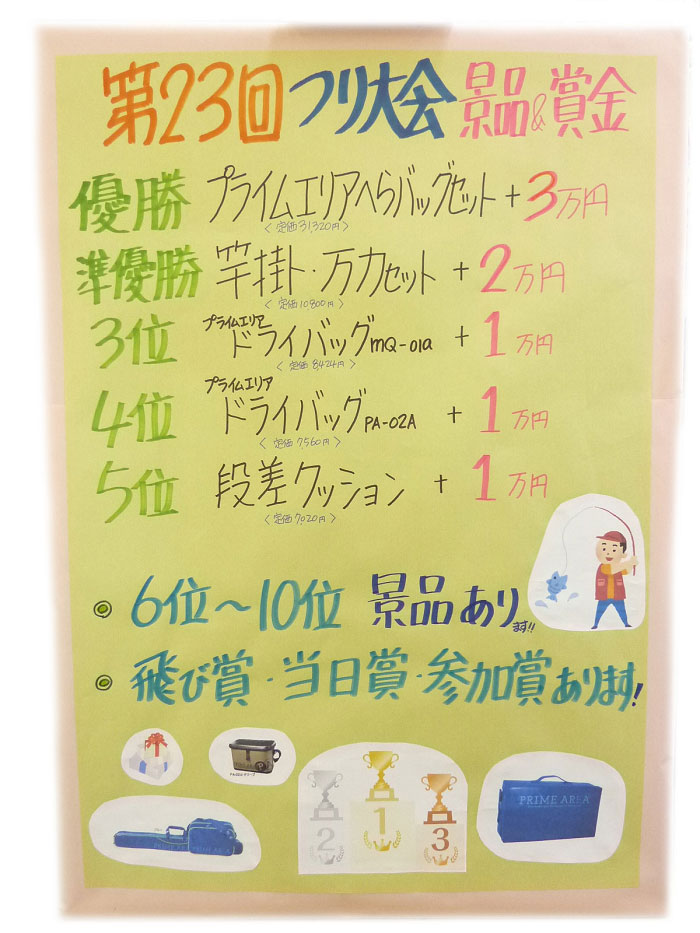 第23回つり大会景品&賞金
優勝 プライムエリアへらバッグセット+3万円
〈定価31,320円〉
準優勝 竿掛・万力セット+2万円
〈定価10,800円〉
プライムエリア
3位 ドライバッグMQ-01a+1万円
〈定価8,424円〉
プライムエリア
4位 ドライバッグPA-02A+1万円
〈定価7,560円〉
5位 段差クッション+1万円
〈定価7,020円〉
6位〜10位 景品あります!!
飛び賞・当日賞・参加賞あります!
2 1 3
PRIME AREA